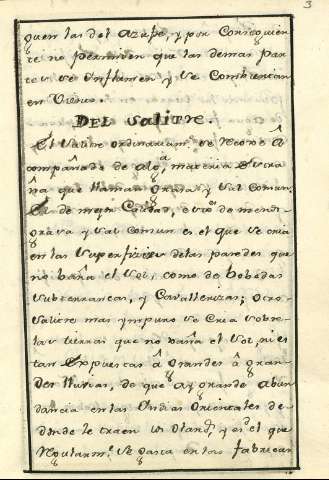 3
quen las del Azufre, y por Consiguien
te no permiten que las demas par
tes se Inflamen y se Combiertan
en Vidrio.
DEL Salitre.
El Salitre ordinariam.te se Recoxe â
compañado de alg.a materia Estra
ña que llaman Grasa y Sal comun.
El de mejor Calidad, y de menos
grasa y sal comun es el que se cria
en las superfizies delas paredes que
no baña el Sol, como de bobedas
subterraneas, y Cavallerizas; otro
Salitre mas ympuro se Cria sobre
las tierras que no baña el Sol, ni es
tan Expuestas â Grandes â gran
des lluvias, de que ay grande abun
dancia en las Indias Orientales de
donde le traen los Oland.s y es el que
Regularm.te se gasta en las fabricas